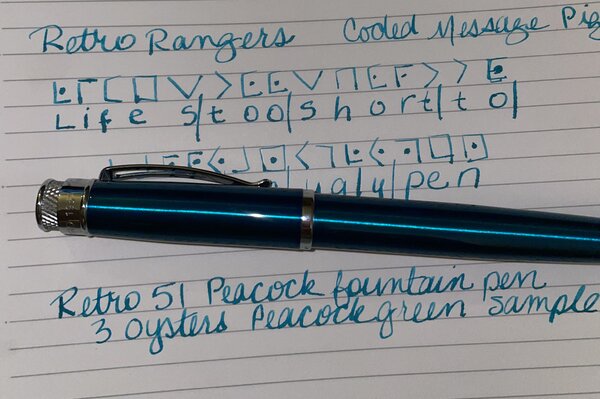 Retro Rangers Coded Message
Life s/too/short/to/
ugly/pen
Retro 51 Peacock fountain pen
3 Oysters Peacock green sample